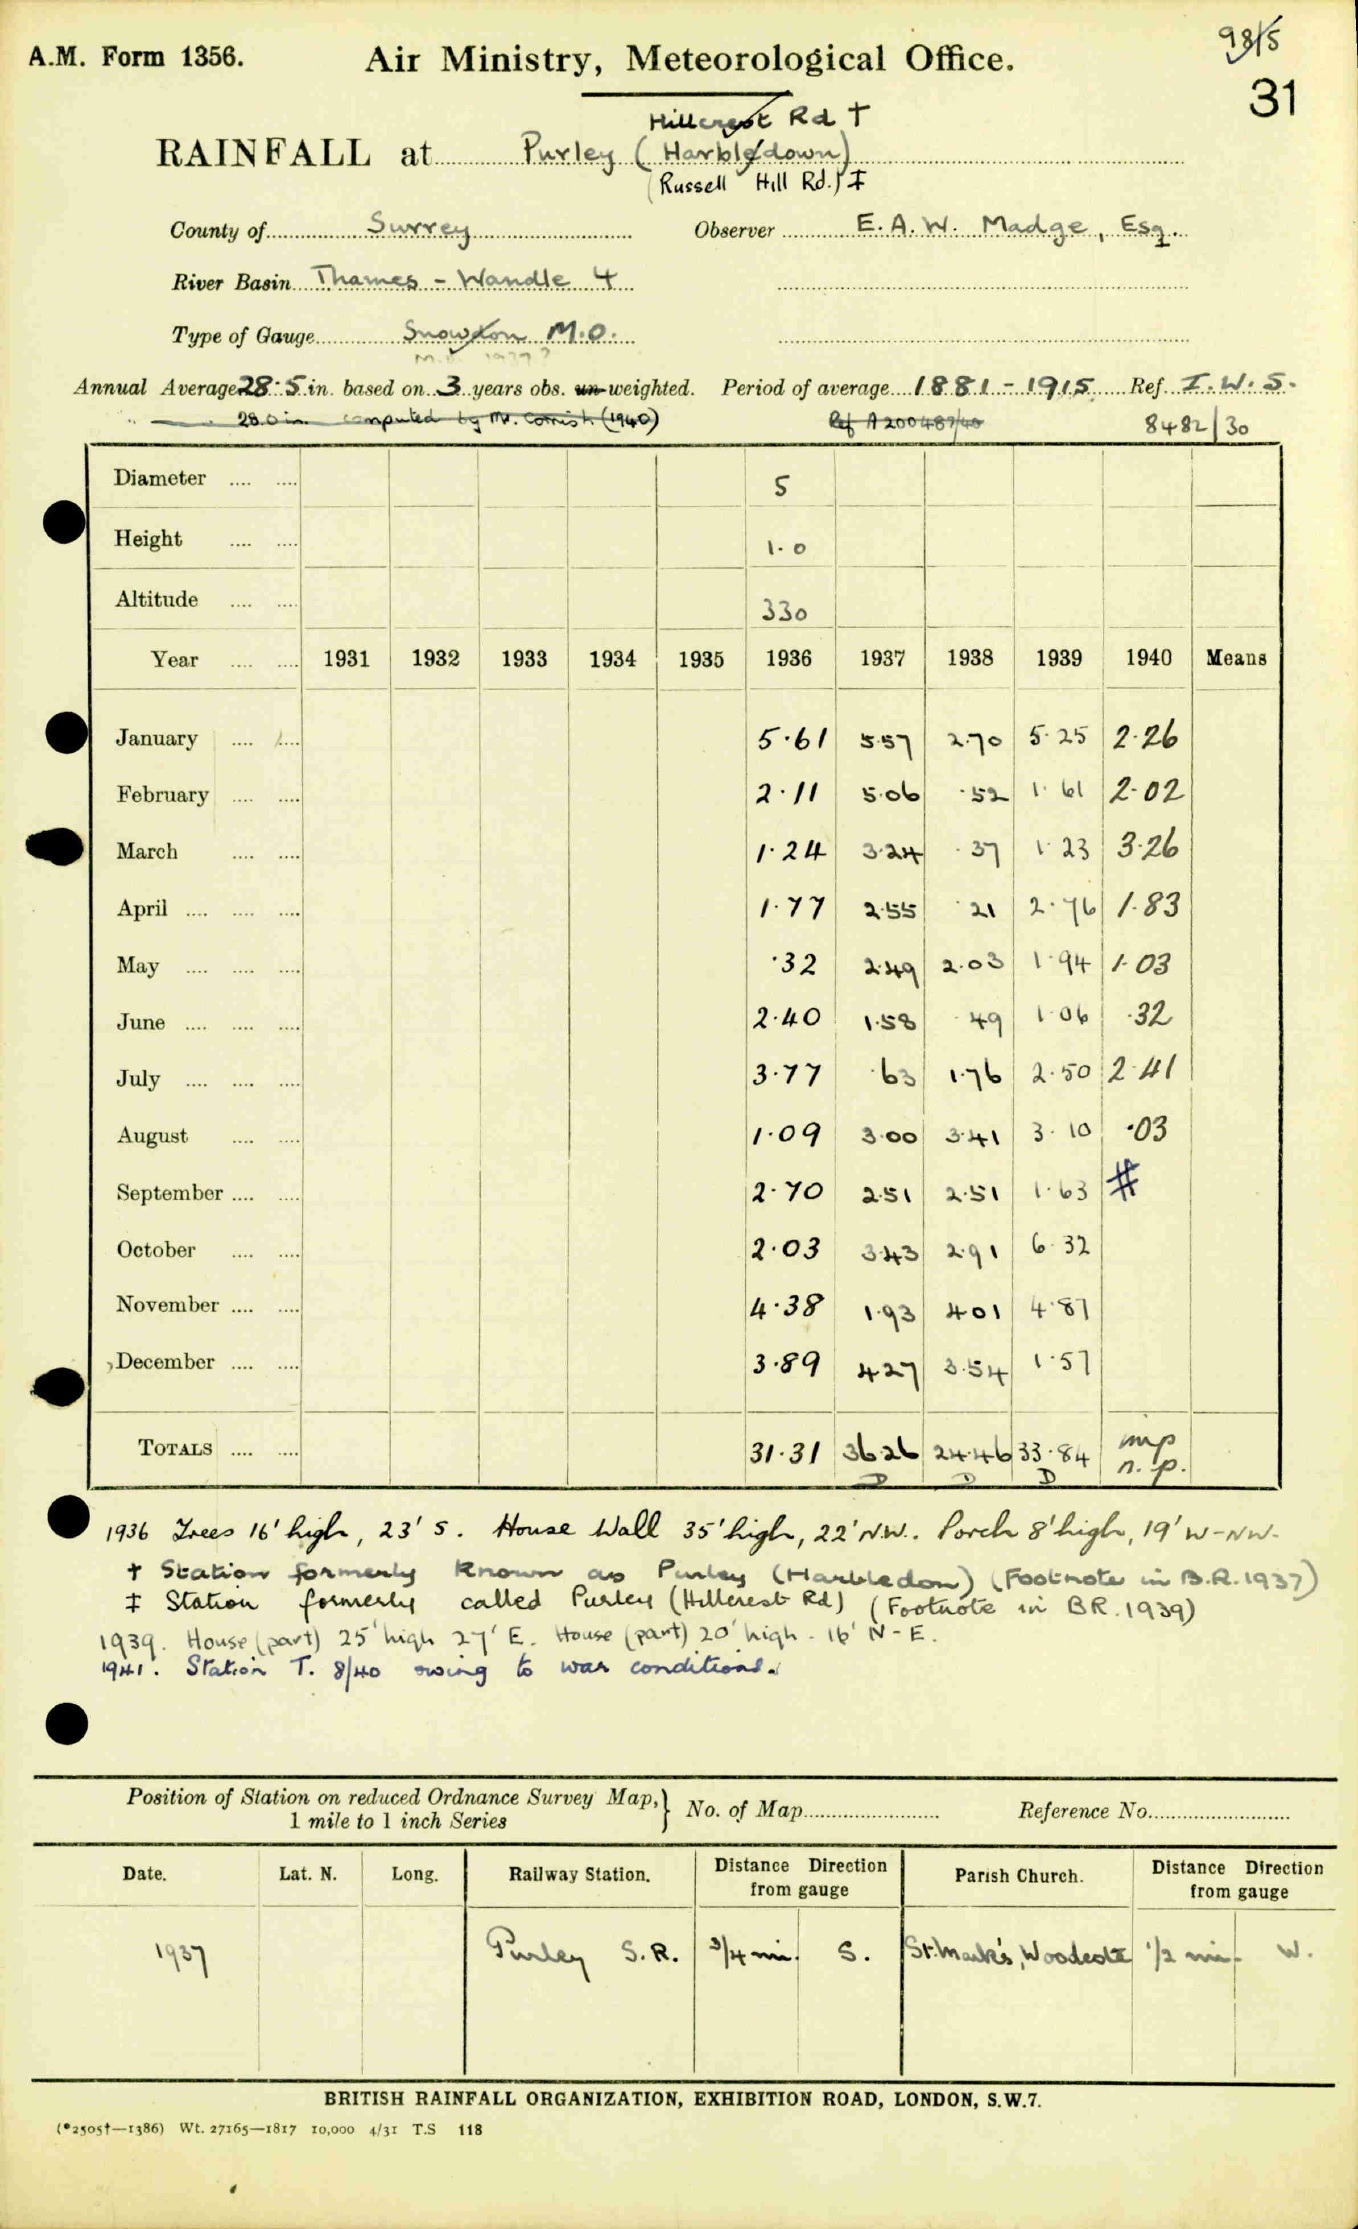 A.M. Form 1356. Air Ministry, Meteorological Office. 98/5
31
Hillcrest Rd †
RAINFALL at Purley (Harbledown)
(Russell Hill Rd.) ‡
County of Surrey Observer E. A. W. Madge, Esq.
River Basin Thames - Wandle 4
Type of Gauge Snowdon M.O.
M.O. 1937?
Annual Average 28.5 in. based on 3 years obs. un-weighted. Period of average 1881 - 1915 Ref. I. W. S.
28.0 in computed by Mr. Cornish (1940) Ref A200487/40 8482/30
Diameter .... .... 5
Height .... .... 1.0
Altitude .... .... 330
Year .... .... 1931 1932 1933 1934 1935 1936 1937 1938 1939 1940 Means
January .... .... 5.61 5.57 2.70 5.25 2.26
February .... .... 2.11 5.06 .52 1.61 2.02
March .... .... 1.24 3.24 .37 1.23 3.26
April .... .... .... 1.77 2.55 .21 2.76 1.83
May .... .... .... .32 2.49 2.03 1.94 1.03
June .... .... .... 2.40 1.58 .49 1.06 .32
July .... .... .... 3.77 .63 1.76 2.50 2.41
August .... .... 1.09 3.00 3.41 3.10 .03
September .... .... 2.70 2.51 2.51 1.63 #
October .... .... 2.03 3.43 2.91 6.32
November .... .... 4.38 1.93 4.01 4.87
December .... .... 3.89 4.27 3.54 1.57
TOTALS .... .... 31.31 36.26 24.46 33.84 imp
D D D n.p.
1936 Trees 16' high, 23' S. House Wall 35' high, 22' N.W. Porch 8' high, 19' W-NW.
† Station formerly known as Purley (Harbledon) (Footnote in B.R. 1937)
‡ Station formerly called Purley (Hillcrest Rd) (Footnote in BR. 1939)
1939. House (part) 25' high 27' E. House (part) 20' high. 16' N-E.
1941. Station T. 8/40 owing to war conditions.
Position of Station on reduced Ordnance Survey Map, } No. of Map Reference No.
1 mile to 1 inch Series
Date. Lat. N. Long. Railway Station. Distance Direction from gauge Parish Church. Distance Direction from gauge
1937 Purley S.R. 3/4 mi. S. St. Mark's, Woodcote 1/2 mi. W.
BRITISH RAINFALL ORGANIZATION, EXHIBITION ROAD, LONDON, S.W.7.
(*2505†—1386) Wt. 27165—1817 10,000 4/31 T.S 118